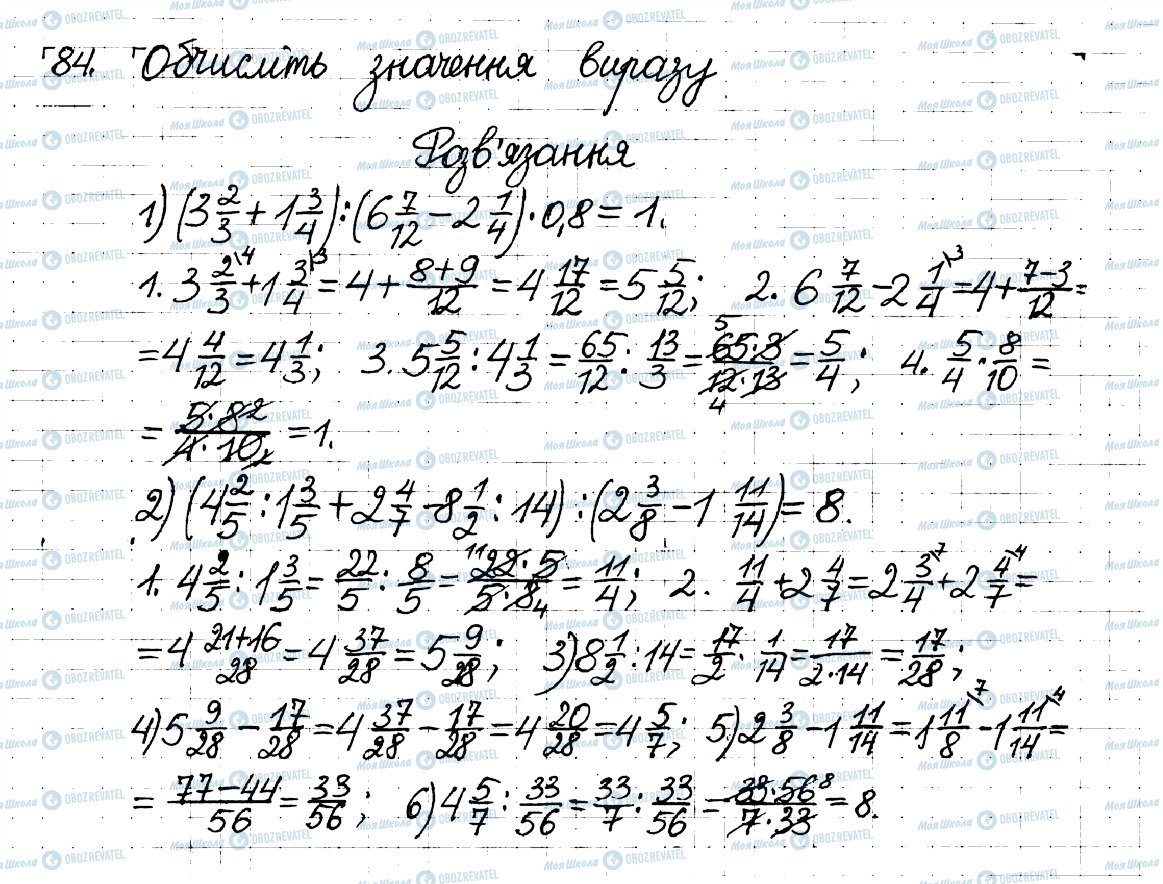 84. Обчисліть значення виразу
Розв'язання
1) (3 2/3 + 1 3/4) : (6 7/12 − 2 1/4) · 0,8 = 1.
1. 3 2\4/3 + 1 3\3/4 = 4 + (8+9)/12 = 4 17/12 = 5 5/12; 2. 6 7/12 − 2 1\3/4 = 4 + (7−3)/12 =
= 4 4/12 = 4 1/3; 3. 5 5/12 : 4 1/3 = 65/12 : 13/3 = (65·3)/(12·13) 5 4 = 5/4; 4. 5/4 · 8/10 =
= (5·8)/(4·10) 2 2 = 1.
2) (4 2/5 : 1 3/5 + 2 4/7 − 8 1/2 : 14) : (2 3/8 − 1 11/14) = 8.
1. 4 2/5 : 1 3/5 = 22/5 : 8/5 = (22·5)/(5·8) 11 4 = 11/4; 2. 11/4 + 2 4/7 = 2 3\7/4 + 2 4\4/7 =
= 4 (21+16)/28 = 4 37/28 = 5 9/28; 3) 8 1/2 : 14 = 17/2 · 1/14 = 17/(2·14) = 17/28;
4) 5 9/28 − 17/28 = 4 37/28 − 17/28 = 4 20/28 = 4 5/7; 5) 2 3/8 − 1 11/14 = 1 11\7/8 − 1 11\4/14 =
= (77−44)/56 = 33/56; 6) 4 5/7 : 33/56 = 33/7 : 33/56 = (33·56)/(7·33) 8 = 8.
МояШкола OBOZREVATEL